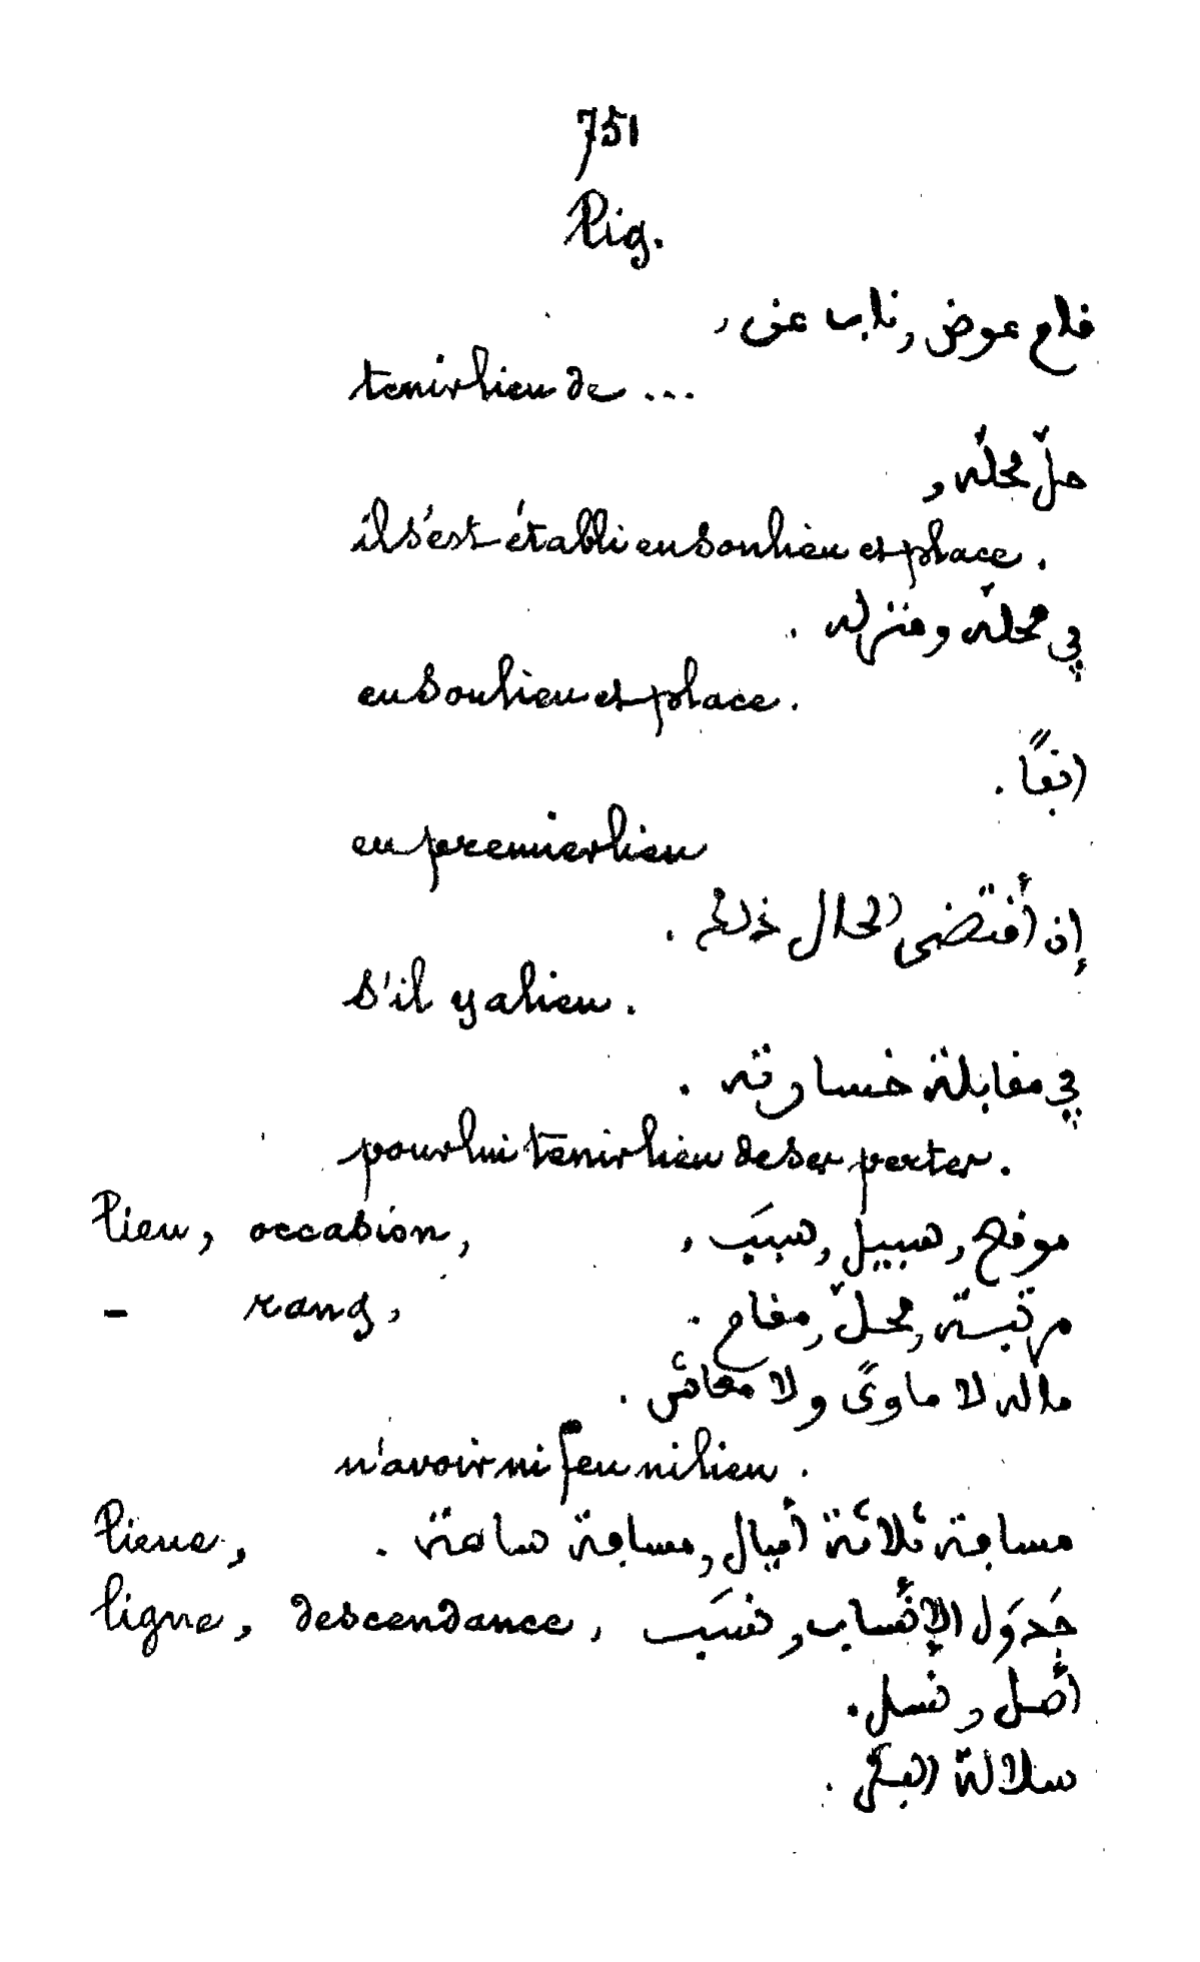 751
Lig.
قام عوض, ناب عن,
tenir lieu de ...
حلّ محلّه,
il s'est établi en son lieu et place.
في محلّه ومنزله.
en son lieu et place.
انفًا.
en premier lieu
إن أقتضى الحال ذلك.
s'il y a lieu.
في مقابلة خسارته.
pour lui tenir lieu de ses pertes.
lieu, occasion, موقع, سبيل, سبَب,
- rang, مرتبة, محلّ, مقام.
ماله لا ماوىً ولا معاش.
n'avoir ni feu ni lieu.
lieue, مسافة ثلاثة أميال, مسافة ساعة.
ligne, descendance, جَدوَل الإنساب, نسَب
أصل, نسل.
سلالة